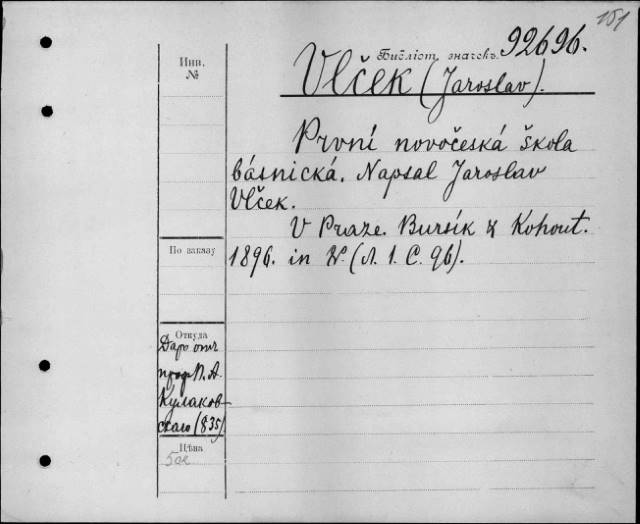 151
Библіот. значекъ. 92696.
Инв.
№
Vlček (Jaroslav).
První novočeská škola
básnická. Napsal Jaroslav
Vlček.
V Praze. Bursík & Kohout.
По заказу
1896. in 8º. (Л. 1. С. 96).
Откуда
Даръ отъ
проф. П. А.
Кулаков-
скаго (835)
Цѣна
50к